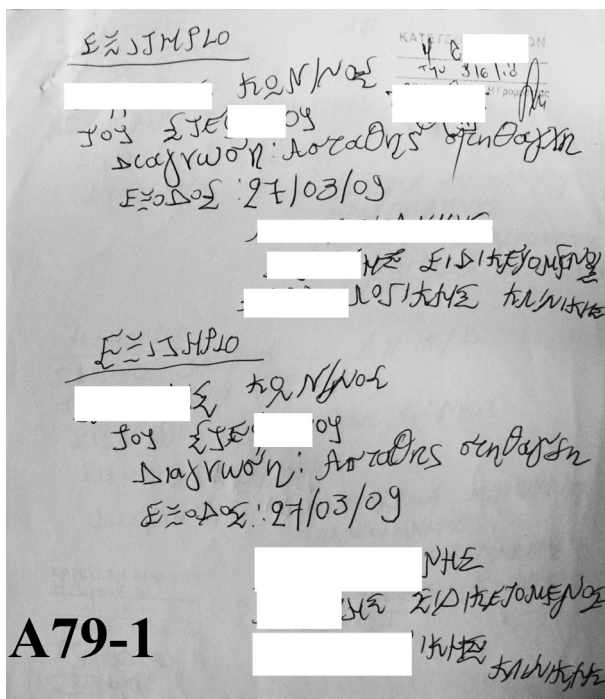 ΕΞΙΤΗΡΙΟ
ΚΑΤΕΤΕ ΟΝ
ΚΩΝ/ΝΟΣ
ΤΟΥ ΣΤΕ ΟΥ
Διαγνωση: Ασταθης στηθαγχη
ΕΞΟΔΟΣ: 27/03/09
ΗΣ ΕΙΔΙΚΕΥΟΜΕΝΟΣ
ΛΟΓΙΚΗΣ ΚΛΙΝΙΚΗΣ
ΕΞΙΤΗΡΙΟ
ΗΣ ΚΩΝ/ΝΟΣ
ΤΟΥ ΣΤΕ ΟΥ
Διαγνωση: Ασταθης στηθαγχη
ΕΞΟΔΟΣ: 27/03/09
ΝΗΣ
ΗΣ ΕΙΔΙΚΕΥΟΜΕΝΟΣ
ΙΚΗΣ ΚΛΙΝΙΚΗΣ
A79-1